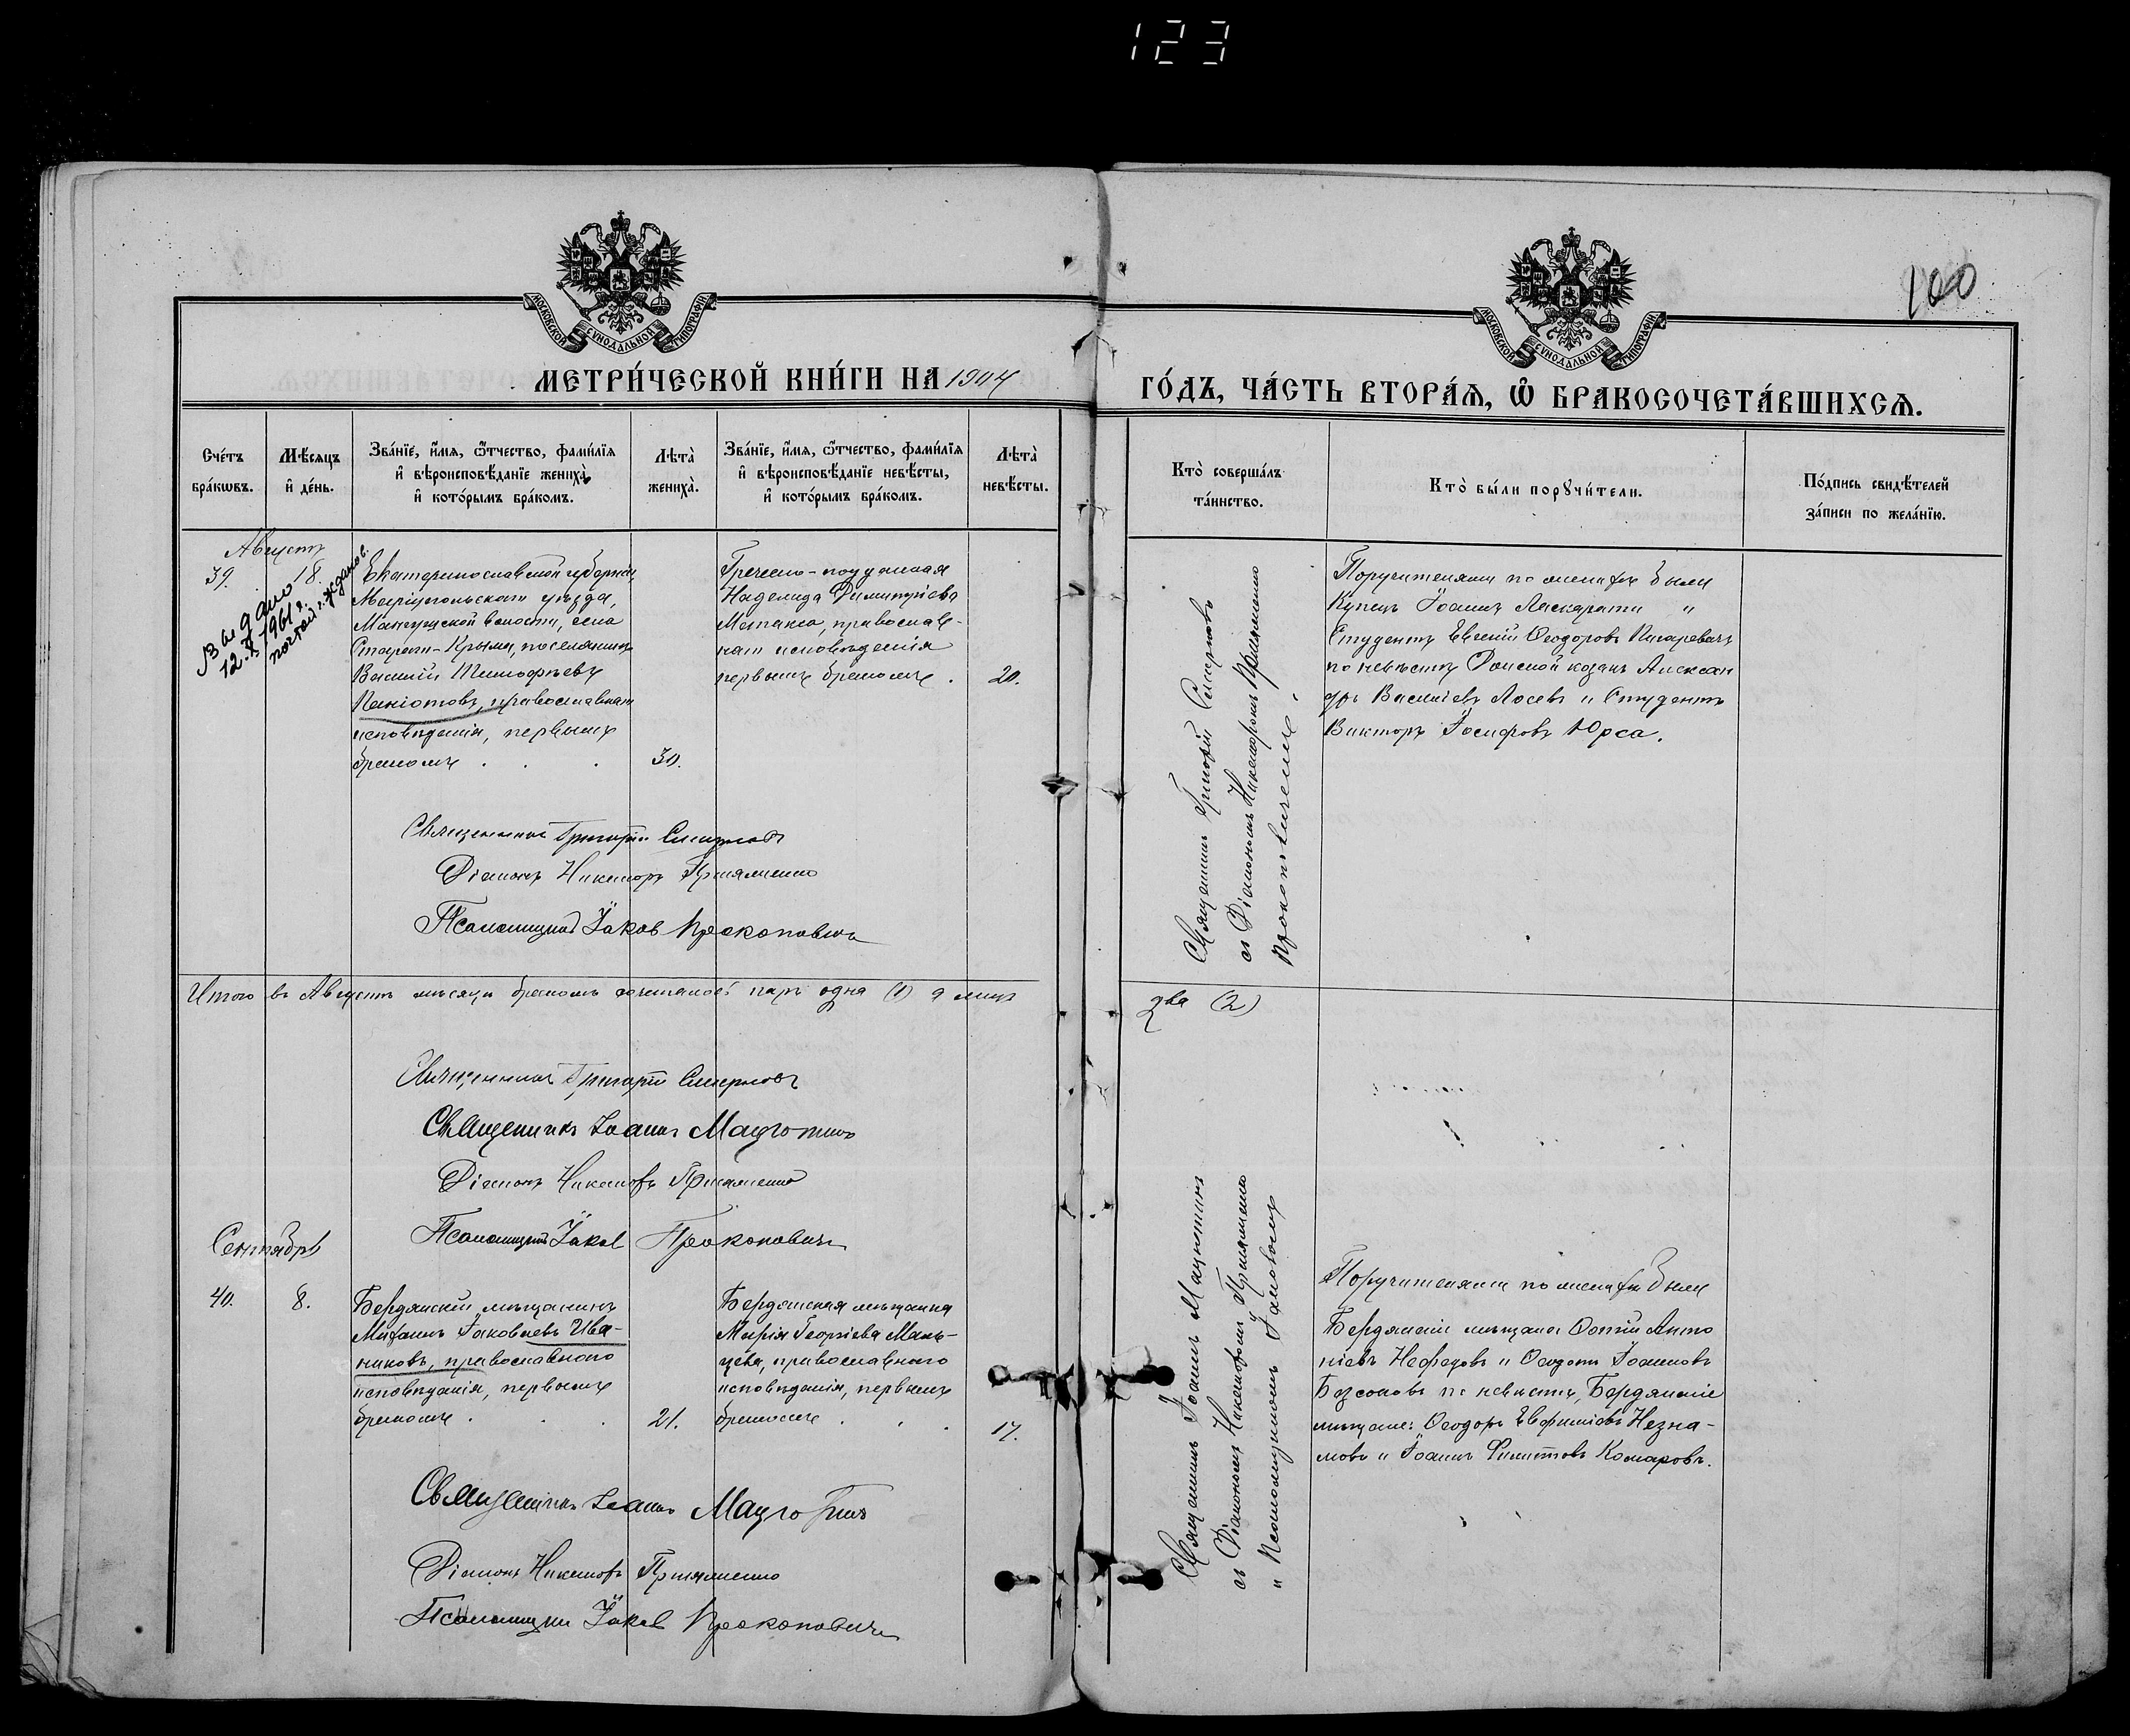 123
100
МОСКОВСКОЙ СУНОДАЛЬНОЙ ТИПОГРАФІИ
МОСКОВСКОЙ СУНОДАЛЬНОЙ ТИПОГРАФІИ
МЕТРИ́ЧЕСКОЙ КНИ́ГИ НА 1904
ГО́ДЪ, ЧА́СТЬ ВТОРА́Ѧ, Ѽ БРАКОСОЧЕТА́ВШИХСѦ.
Сче́тъ
бра́кѡвъ.
Мѣ́сяцъ
и҆ де́нь.
Зва́нїе, и҆́мя, ѻ҆́тчество, фами́лїя
и҆ вѣроисповѣ́данїе жениха̀
и҆ кото́рымъ бра́комъ.
Лѣта̀
жениха̀.
Зва́нїе, и҆́мя, ѻ҆́тчество, фами́лїя
и҆ вѣроисповѣ́данїе невѣ́сты,
и҆ кото́рымъ бра́комъ.
Лѣта̀
невѣ́сты.
Кто̀ соверша́лъ
та́инство.
Кто̀ бы́ли порꙋчи́тели.
По́дпись свидѣ́телей
за́писи по жела́нїю.
Августъ
39. 18.
Выдано
12.X 1961 г.
почтой г. Жданов.
Екатеринославской губерніи,
Маріупольскаго уѣзда,
Мангушской волости, села
Стараго-Крыма, поселянинъ
Василій Тимофѣевъ
Паніотовъ, православнаго
исповѣданія, первымъ
бракомъ . . . 30.
Гречески-подданная
Надежда Димитріева
Метакса, православ-
наго исповѣданія
первымъ бракомъ . 20.
Священникъ Григорій Смирновъ
съ Діакономъ Никифоромъ Пришменко
Прокоповичемъ.
Поручителями по женихѣ были
Купецъ Іоаннъ Ласкарати и
Студентъ Евгеній Ѳеодоровъ Писаревичъ
по невѣстѣ Донской козакъ Алексан
дръ Василіевъ Лосевъ и Студентъ
Викторъ Іосифовъ Юрса.
Священникъ Григорій Смирновъ
Діаконъ Никифоръ
Псаломщикъ Іаковъ Прокоповичъ
Итого въ Августѣ мѣсяцѣ бракомъ сочеталось паръ одна (1) а лицъ два (2)
Священникъ Григорій Смирновъ
Священникъ Іоаннъ
Діаконъ Никифоръ
Псаломщикъ Іаковъ Прокоповичъ
Сентябрь
40. 8.
Бердянскій мѣщанинъ
Михаилъ Іаковлевъ Ива-
никовъ, православнаго
исповѣданія, первымъ
бракомъ . . . 21.
Бердянская мѣщанка
Марія Георгіева Маль-
цева, православнаго
исповѣданія, первымъ
бракомъ . . . 17.
Священникъ Іоаннъ
съ Діакономъ Никифоромъ
и Псаломщикомъ Іаковомъ
Поручителями по женихѣ были
Бердянскіе мѣщане Фотій Анто
ніевъ Нефедовъ и Ѳеодотъ Іоанновъ
Безсоновъ по невѣстѣ, Бердянскіе
мѣщане: Ѳеодоръ Евфиміевъ Незна-
мовъ и Іоаннъ Комаровъ.
Священникъ Іоаннъ
Діаконъ Никифоръ
Псаломщикъ Іаковъ Прокоповичъ